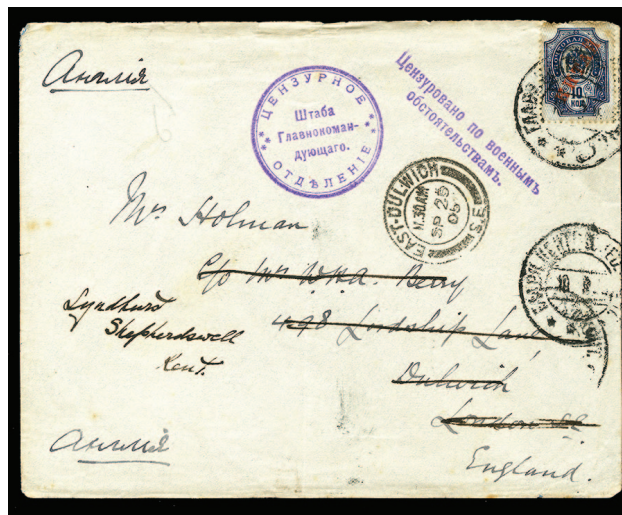 Англія
ЦЕНЗУРНОЕ
Штаба
Главнокоман-
дующаго.
ОТДѢЛЕНІЕ
Цензуровано по военнымъ
обстоятельствамъ.
10
КОП
EAST-DULWICH
SP 25
05
S.E.
Mrs Holman
c/o Mrs W.H.A. Berry
498 Lordship Lane
Dulwich
London SE
England.
Lyndhurst
Shepherdswell
Kent.
10
Англія